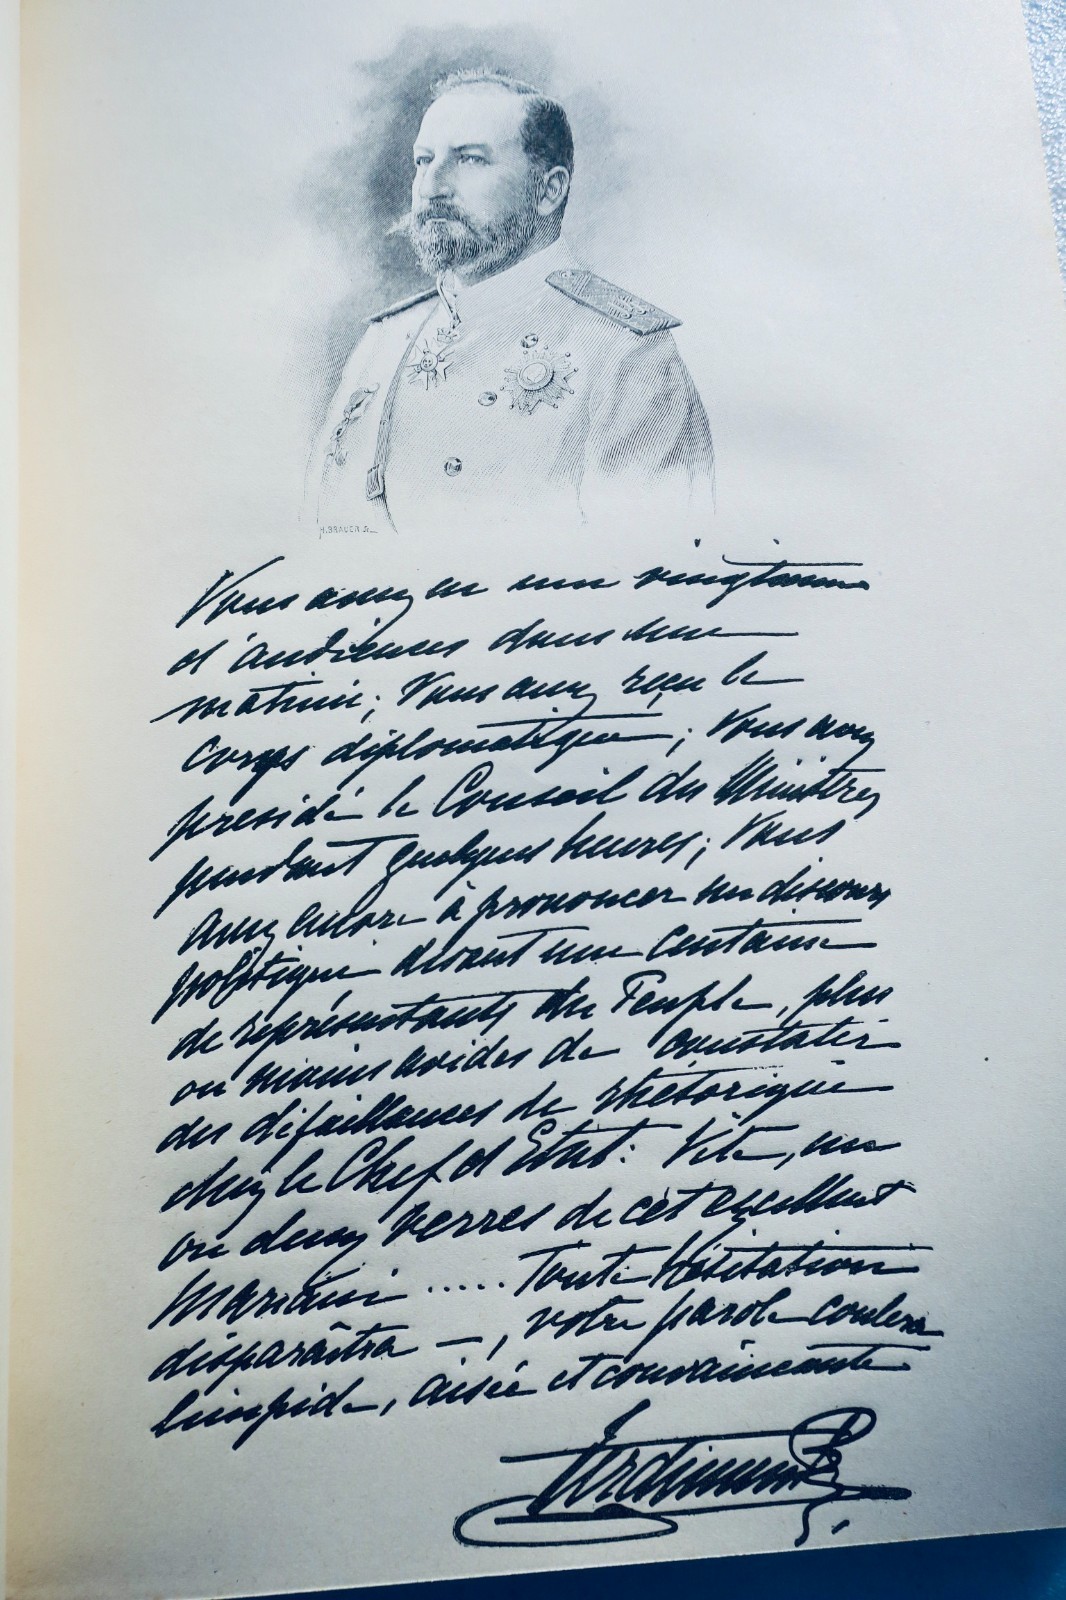 H. BRAUER Sc
Vous avez eu une vingtaine
d'audiences dans une
matinée; Vous avez reçu le
Corps diplomatique; Vous avez
présidé le Conseil des Ministres
pendant quelques heures; Vous
avez encore à prononcer un discours
politique devant une centaine
de représentants du Peuple, plus
ou moins avides de constater
des défaillances de rhétorique
chez le Chef d'Etat: Vite, un
ou deux verres de cet excellent
Mariani ..... Toute hésitation
disparaîtra —, votre parole coulera
limpide, aisée et convaincante
Ferdinand